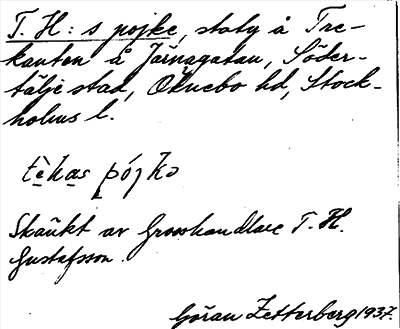 T. H: s pojke, staty å Tre-
kanten å Järnagatan, Söder-
tälje stad, Öknebo hd, Stock-
holms l.
tèhas pójkə
Skänkt av Grosshandlare T. H.
Gustafsson.
Göran Zetterberg 1937.